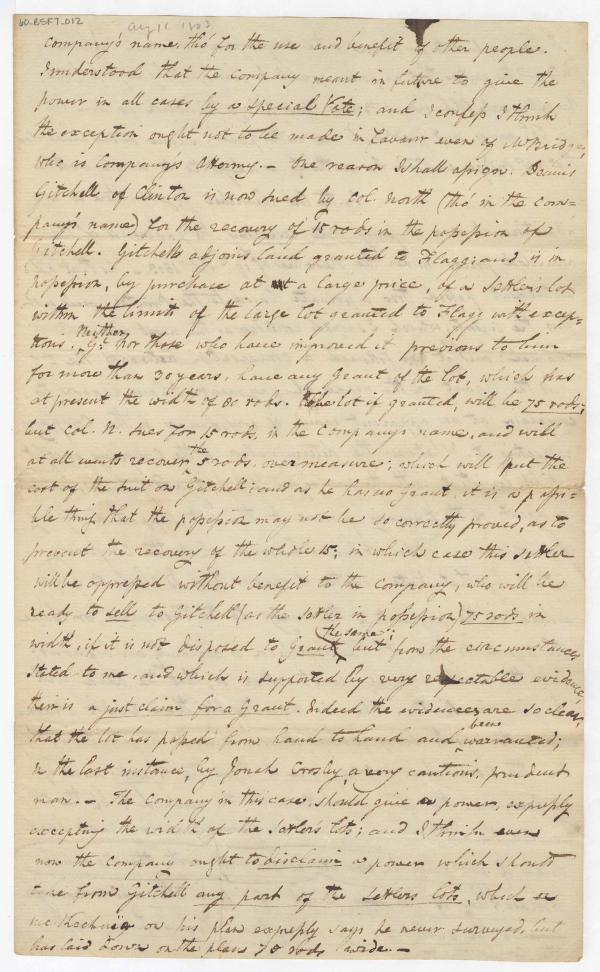 60.BSF7.012
Aug 11 1803
company's name, tho' for the use and benefit of other people.
I understood that the company meant in future to give the
power in all cases by a special Vote; and I confess I think
the exception ought not to be made in favour even of Mr Bridge,
who is Company's Attorney. – One reason I shall assign. Dennis
Gitchell of Clinton is now sued by Col. North (tho' in the com=
pany's name) for the recovery of 15 rods in the possession of
Gitchell. Gitchell adjoins land granted to Flagg; and is in
possession, by purchase at a large price, of a Settlers lot
within the limits of the large lot granted to Flagg with excep=
tions. Neither G. nor those who have improved it previous to him
for more than 30 years, have any Grant of the lot, which has
at present the width of 80 rods. The lot if granted, will be 75 rods;
but Col. N. sues for 15 rods, in the Company's name, and will
at all events recover the 5 rods overmeasure; which will put the
cost of the suit on Gitchell; and as he has no Grant, it is a possi=
ble thing that the possession may not be so correctly proved, as to
prevent the recovery of the whole 15; in which case this settler
will be oppressed without benefit to the company, who will be
ready to sell to Gitchell (as the Settler in possession) 75 rods in
width, if it is not disposed to Grant the same; but from the circumstances
stated to me, and which is supported by very respectable evidence,
their is a just claim for a Grant. Indeed the evidences are so clear,
that the lot has passed from hand to hand and been warranted;
in the last instance, by Jonah Crosby, a very cautious, prudent
man. – The Company in this case, should give a power, expressly
excepting the width of the Settler's lots; and I think even
now the company ought to disclaim a power which should
take from Gitchell any part of the Settlers lots, which
McKechnie on his plan expressly says he never surveyed, but
has laid down on the plan 75 rods wide. –